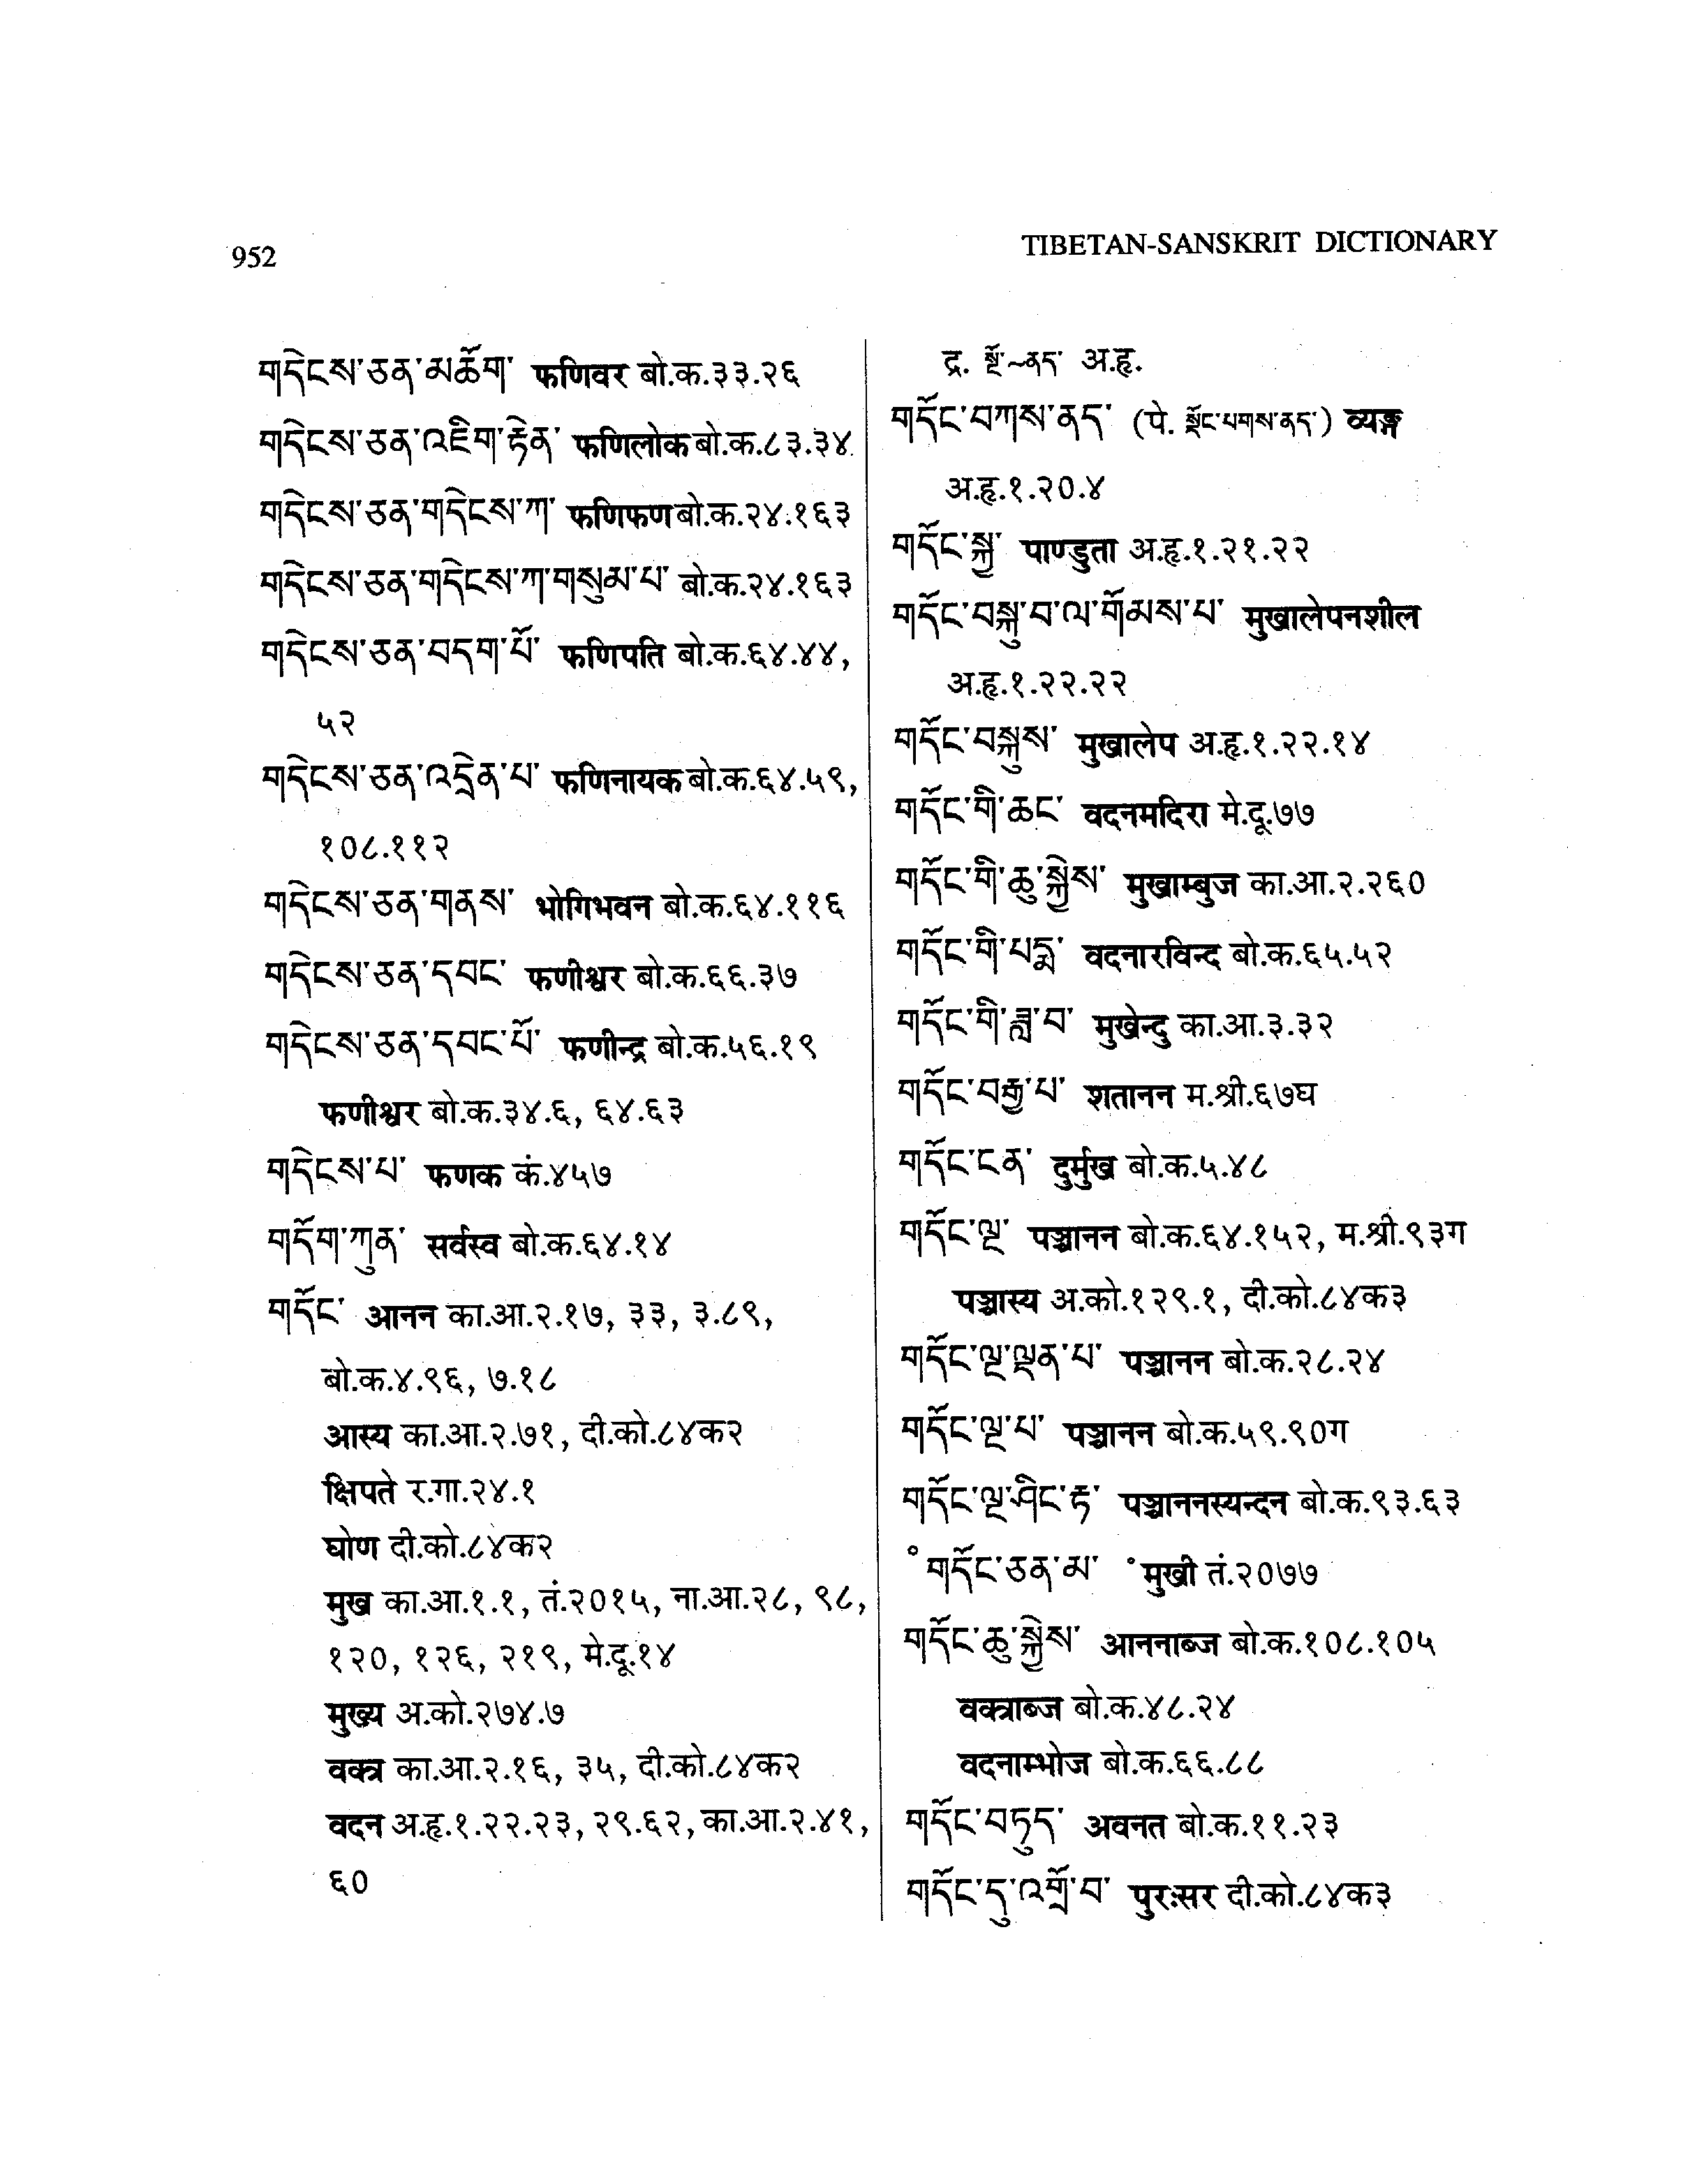 952
TIBETAN-SANSKRIT DICTIONARY
གདེངས་ཅན་མཆོག་ फणिवर बो.क.३३.२६
གདེངས་ཅན་འཇིག་རྟེན་ फणिलोक बो.क.८३.३४
གདེངས་ཅན་གདེངས་ཀ་ फणिफण बो.क.२४.१६३
གདེངས་ཅན་གདེངས་ཀ་གསུམ་པ་ बो.क.२४.१६३
གདེངས་ཅན་བདག་པོ་ फणिपति बो.क.६४.४४,
५२
གདེངས་ཅན་འདྲེན་པ་ फणिनायक बो.क.६४.५९,
१०८.११२
གདེངས་ཅན་གནས་ भोगिभवन बो.क.६४.११६
གདེངས་ཅན་དབང་ फणीश्वर बो.क.६६.३७
གདེངས་ཅན་དབང་པོ་ फणीन्द्र बो.क.५६.१९
फणीश्वर बो.क.३४.६, ६४.६३
གདེངས་པ་ फणक कं.४५७
གདོག་ཀུན་ सर्वस्व बो.क.६४.१४
གདོང་ आनन का.आ.२.१७, ३३, ३.८९,
बो.क.४.९६, ७.१८
आस्य का.आ.२.७१, दी.को.८४क२
क्षिपते र.गा.२४.१
घोण दी.को.८४क२
मुख का.आ.१.१, तं.२०१५, ना.आ.२८, ९८,
१२०, १२६, २१९, मे.दू.१४
मुख्य अ.को.२७४.७
वक्त्र का.आ.२.१६, ३५, दी.को.८४क२
वदन अ.हृ.१.२२.२३, २९.६२, का.आ.२.४१,
६०
द्र. སྔོ་~ནད་ अ.हृ.
གདོང་བཀས་ནད་ (पे. སྡོང་པགས་ནད་) व्यङ्ग
अ.हृ.१.२०.४
གདོང་སྐྱ་ पाण्डुता अ.हृ.१.२१.२२
གདོང་བསྐུ་བ་ལ་གོམས་པ་ मुखालेपनशील
अ.हृ.१.२२.२२
གདོང་བསྐུས་ मुखालेप अ.हृ.१.२२.१४
གདོང་གི་ཆང་ वदनमदिरा मे.दू.७७
གདོང་གི་ཆུ་སྐྱེས་ मुखाम्बुज का.आ.२.२६०
གདོང་གི་པདྨ་ वदनारविन्द बो.क.६५.५२
གདོང་གི་ཟླ་བ་ मुखेन्दु का.आ.३.३२
གདོང་བརྒྱ་པ་ शतानन म.श्री.६७घ
གདོང་ངན་ दुर्मुख बो.क.५.४८
གདོང་ལྔ་ पञ्चानन बो.क.६४.१५२, म.श्री.९३ग
पञ्चास्य अ.को.१२९.१, दी.को.८४क३
གདོང་ལྔ་ལྡན་པ་ पञ्चानन बो.क.२८.२४
གདོང་ལྔ་པ་ पञ्चानन बो.क.५९.९०ग
གདོང་ལྔ་ཤིང་རྟ་ पञ्चाननस्यन्दन बो.क.९३.६३
°གདོང་ཅན་མ་ °मुखी तं.२०७७
གདོང་ཆུ་སྐྱེས་ आननाब्ज बो.क.१०८.१०५
वक्त्राब्ज बो.क.४८.२४
वदनाम्भोज बो.क.६६.८८
གདོང་བཏུད་ अवनत बो.क.११.२३
གདོང་དུ་འགྲོ་བ་ पुरःसर दी.को.८४क३